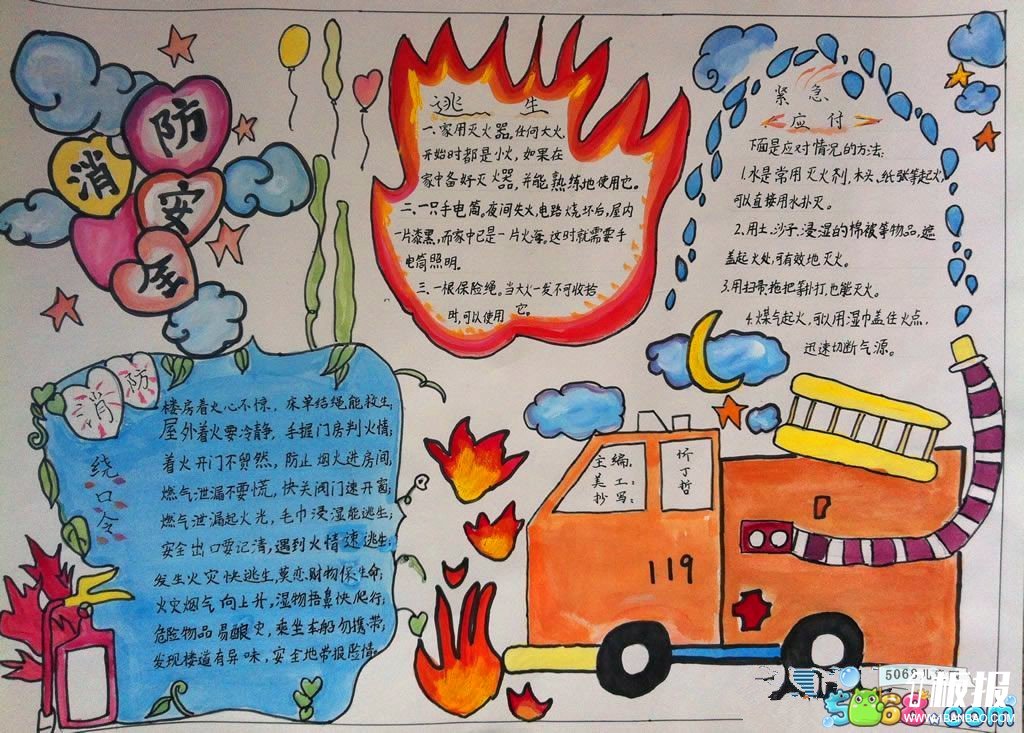 消防安全
逃生
一、家用灭火器。任何大火,
开始时都是小火，如果在
家中备好灭火器，并能熟练地使用它。
二、一只手电筒。夜间失火，电路烧坏后，屋内
一片漆黑，而家中已是一片火海，这时就需要手
电筒照明。
三、一根保险绳。当大火一发不可收拾
时，可以使用它。
紧急
应付
下面是应对情况的方法:
1.水是常用灭火剂，木头、纸张等起火,
可以直接用水扑灭。
2.用土、沙子、浸湿的棉被等物品,遮
盖起火处,可有效地灭火。
3.用扫帚、拖把等扑打,也能灭火。
4.煤气起火,可以用湿巾盖住火点,
迅速切断气源。
消防
绕口令
楼房着火心不惊，床单结绳能救生;
屋外着火要冷静，手握门房判火情;
着火开门不贸然，防止烟火进房间,
燃气泄漏不要慌，快关阀门速开窗;
燃气泄漏起火光，毛巾浸湿能逃生;
安全出口要记清，遇到火情速逃生;
发生火灾快逃生,莫恋财物保生命;
火灾烟气向上升，湿物捂鼻快爬行;
危险物品易酿灾，乘坐车船勿携带;
发现楼道有异味，安全地带报险情。
主编:
美工:
抄写:
价
丁
哲
119
5068儿童
板报
WWW.1BANBAO.COM
5068.com